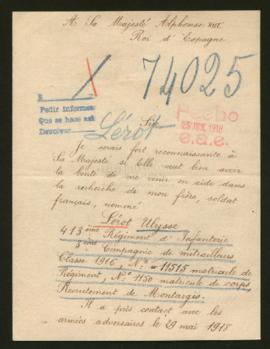 A Sa Majesté Alphonse XIII
Roi d'Espagne
74025
Pedir informes
Que se hace esta
Devolver
Lérot
Sire
Hecho
1918
e.a.e.
Je serais fort reconnaissante à
Sa Majesté si Elle veut bien avoir
la bonté de me venir en aide dans
la recherche de mon frère, soldat
français, nommé
Lérot Ulysse
413ème Régiment d'Infanterie
Compagnie de mitrailleurs
Classe 1916. N° 11515 matricule de
Régiment, N° 1150 matricule de corps
Recrutement de Montargis.
Il a pris contact avec les
armées adversaires le 29 mai 1918